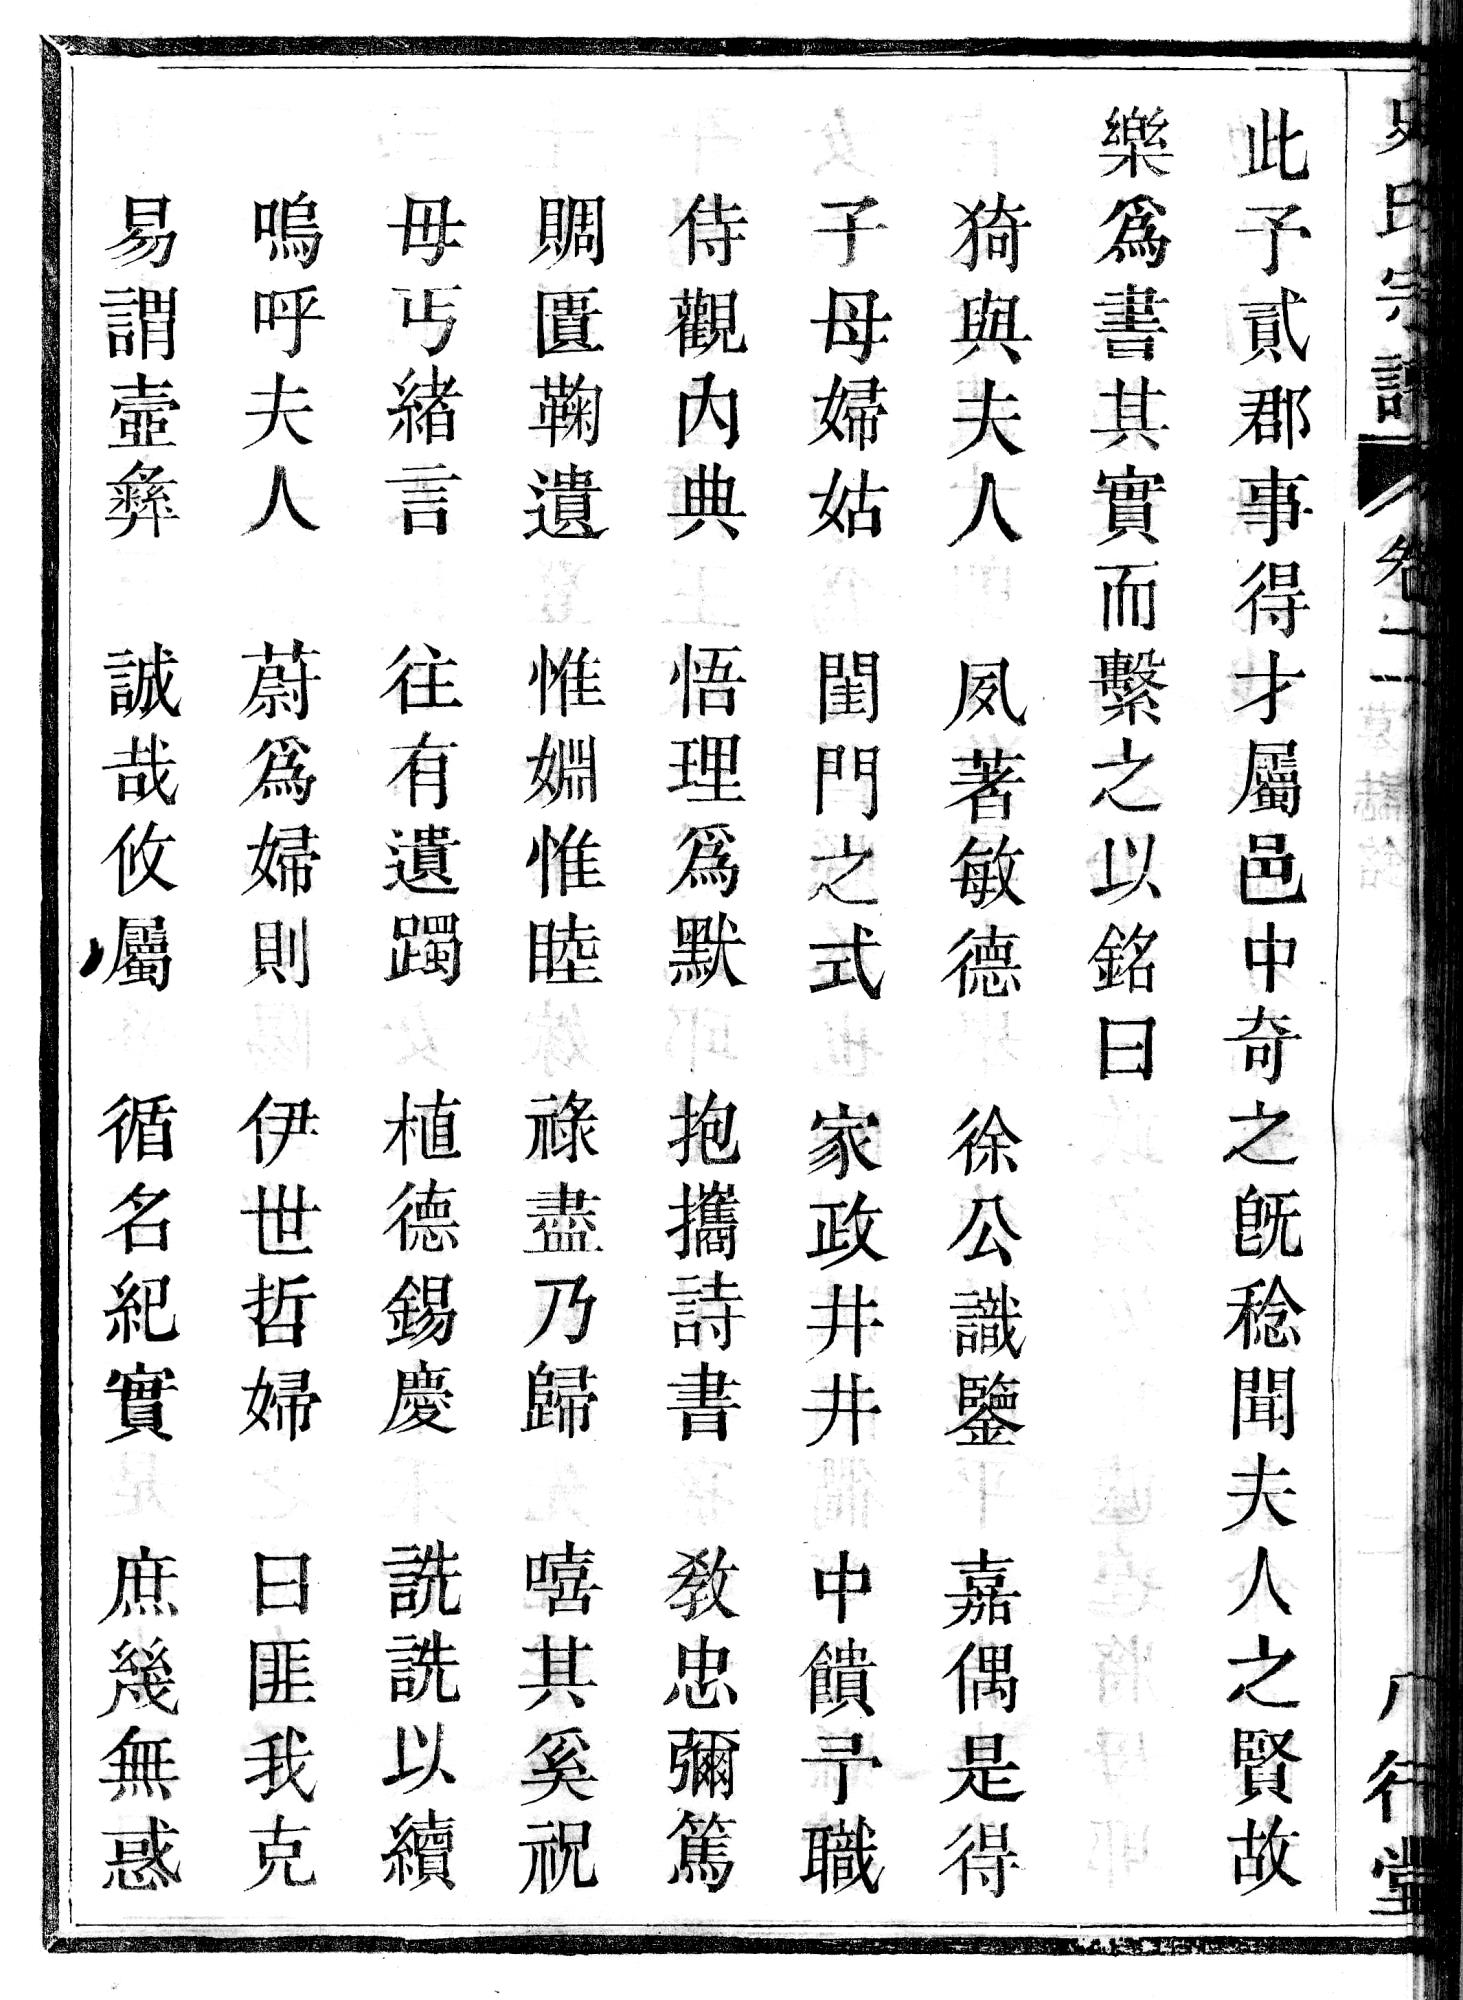 此予貳郡事得才屬邑中奇之旣稔聞夫人之賢故
樂爲書其實而繫之以銘曰
猗與夫人　夙著敏德　徐公識鑒　嘉偶是得
子母婦姑　閨門之式　家政井井　中饋予職
侍觀內典　悟理爲默　抱攜詩書　敎忠彌篤
賙匱鞠遺　惟婣惟睦　祿盡乃歸　嘻其奚祝
母丐緒言　往有遺躅　植德錫慶　詵詵以續
嗚呼夫人　蔚爲婦則　伊世哲婦　曰匪我克
易謂壼彝　誠哉攸屬　循名紀實　庶幾無惑